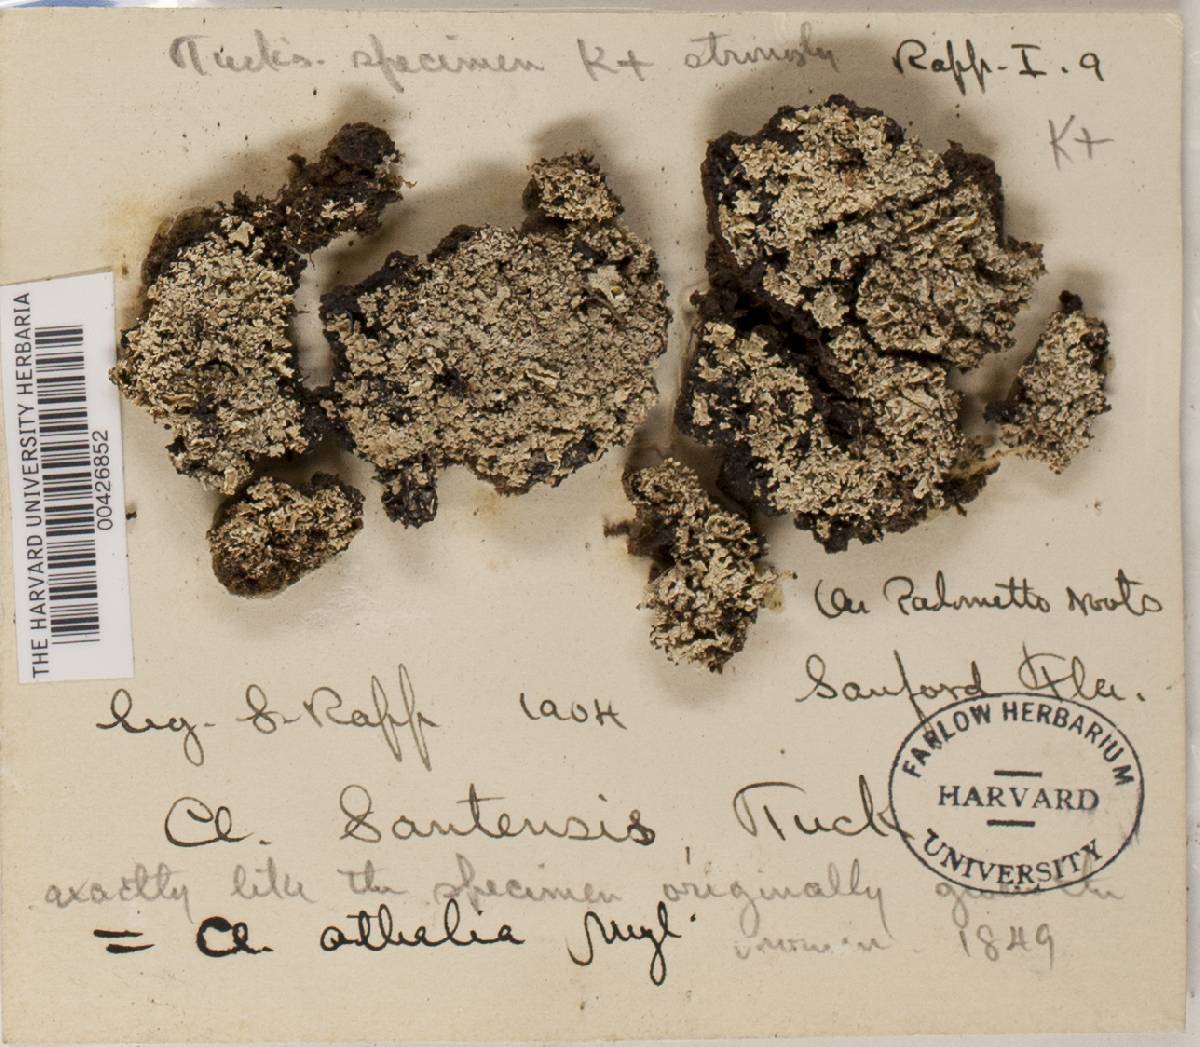 Tuck's. specimen K+ strongly
Rapp-I.9
K+
THE HARVARD UNIVERSITY HERBARIA
00426852
On Palmetto roots
Sanford Fla.
Leg. S. Rapp 1904
FARLOW HERBARIUM
HARVARD
UNIVERSITY
Cl. Santensis, Tuck
exactly like the specimen originally the
= Cl. athelia Nyl.
1849